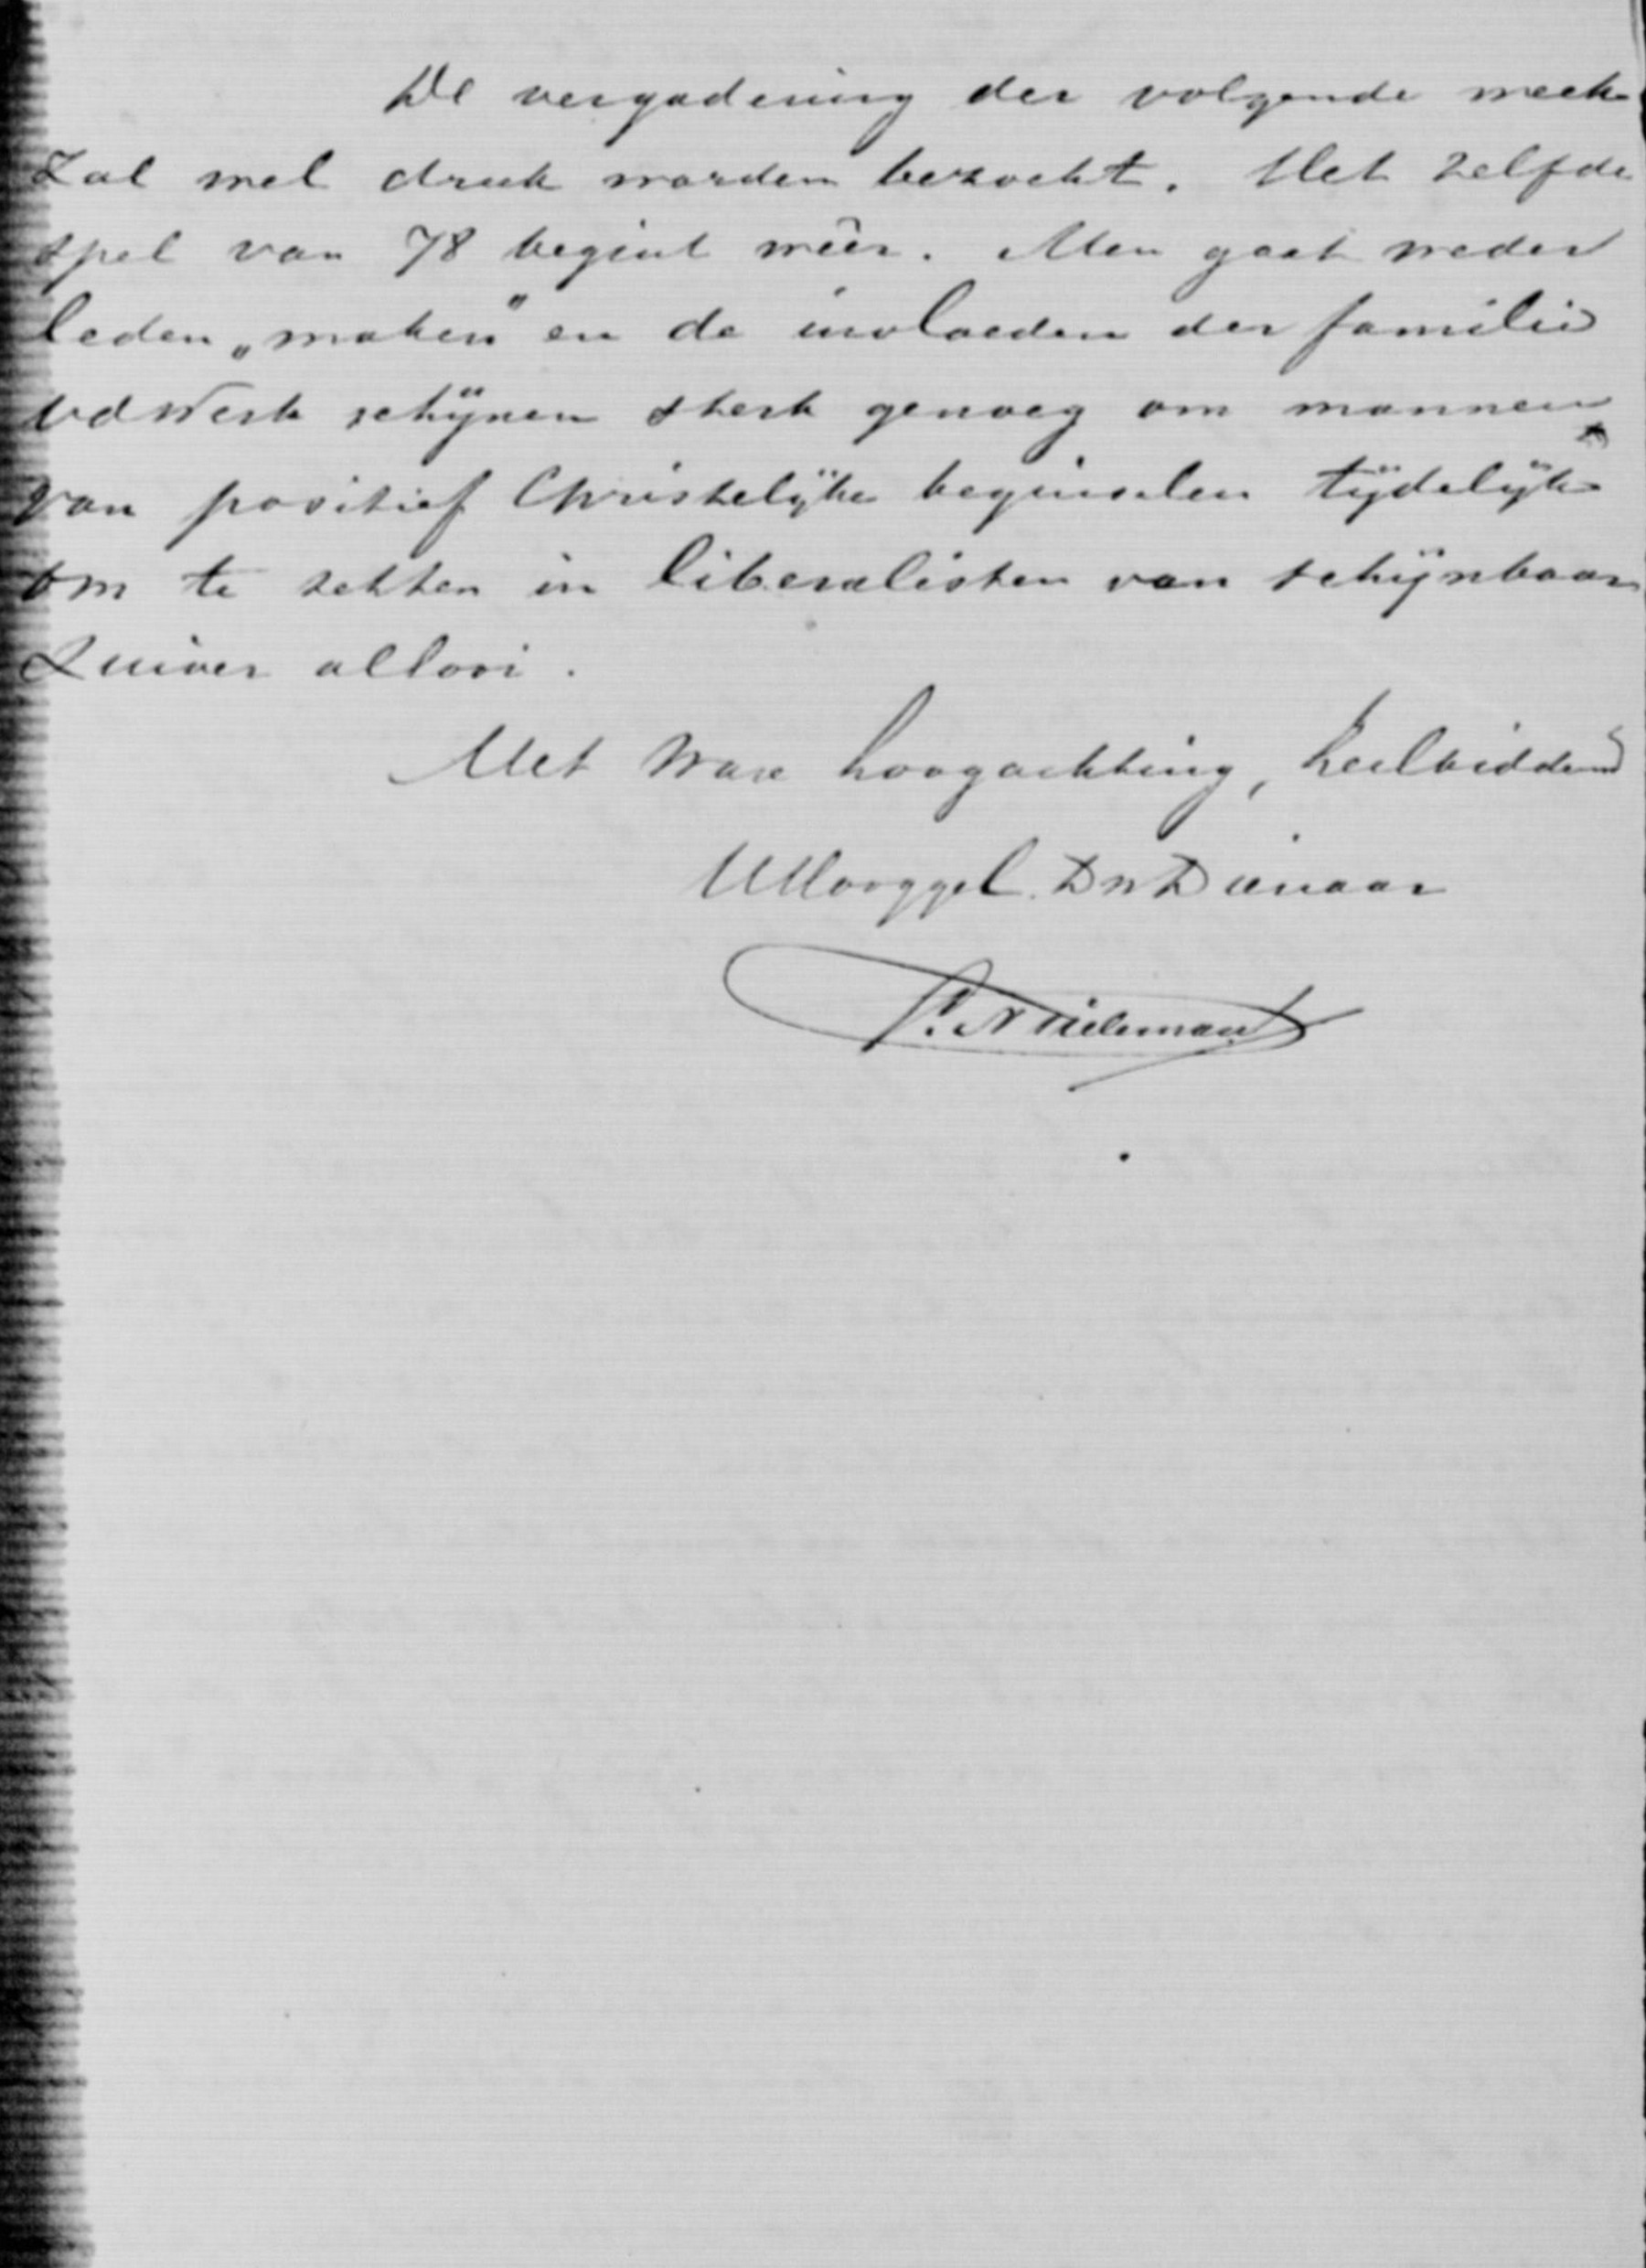 De vergadering der volgende week
zal wel druk worden bezocht. Het zelfde
spel van 78 begint wêer. Men gaat weder
leden „maken” en de invloeden der familie
vd Werk schijnen sterk genoeg om mannen
van positief Christelijke beginselen tijdelijk
om te zetten in liberalisten van schijnbaar
zuiver allooi.
Met ware hoogachting, heilbiddend
UHooggel. Dw Dienaar